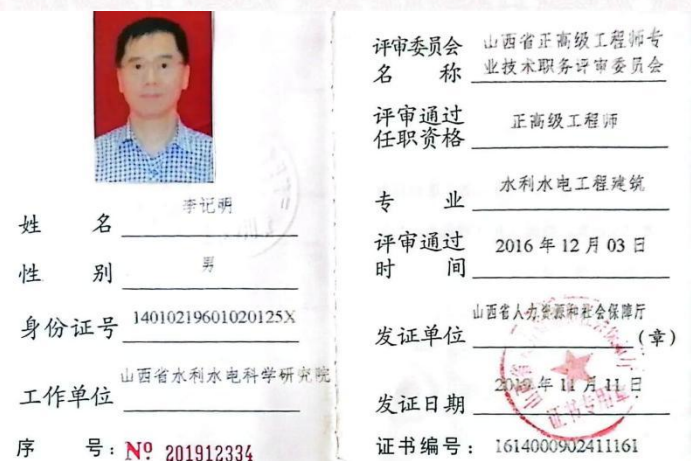 姓 名 李记明
性 别 男
身份证号 14010219601020125X
工作单位 山西省水利水电科学研究院
序 号: Nº 201912334
评审委员会 山西省正高级工程师专
名 称 业技术职务评审委员会
评审通过
任职资格 正高级工程师
专 业 水利水电工程建筑
评审通过
时 间 2016 年 12 月 03 日
发证单位 山西省人力资源和社会保障厅
(章)
发证日期 2019 年 11 月 11 日
证书编号: 1614000902411161